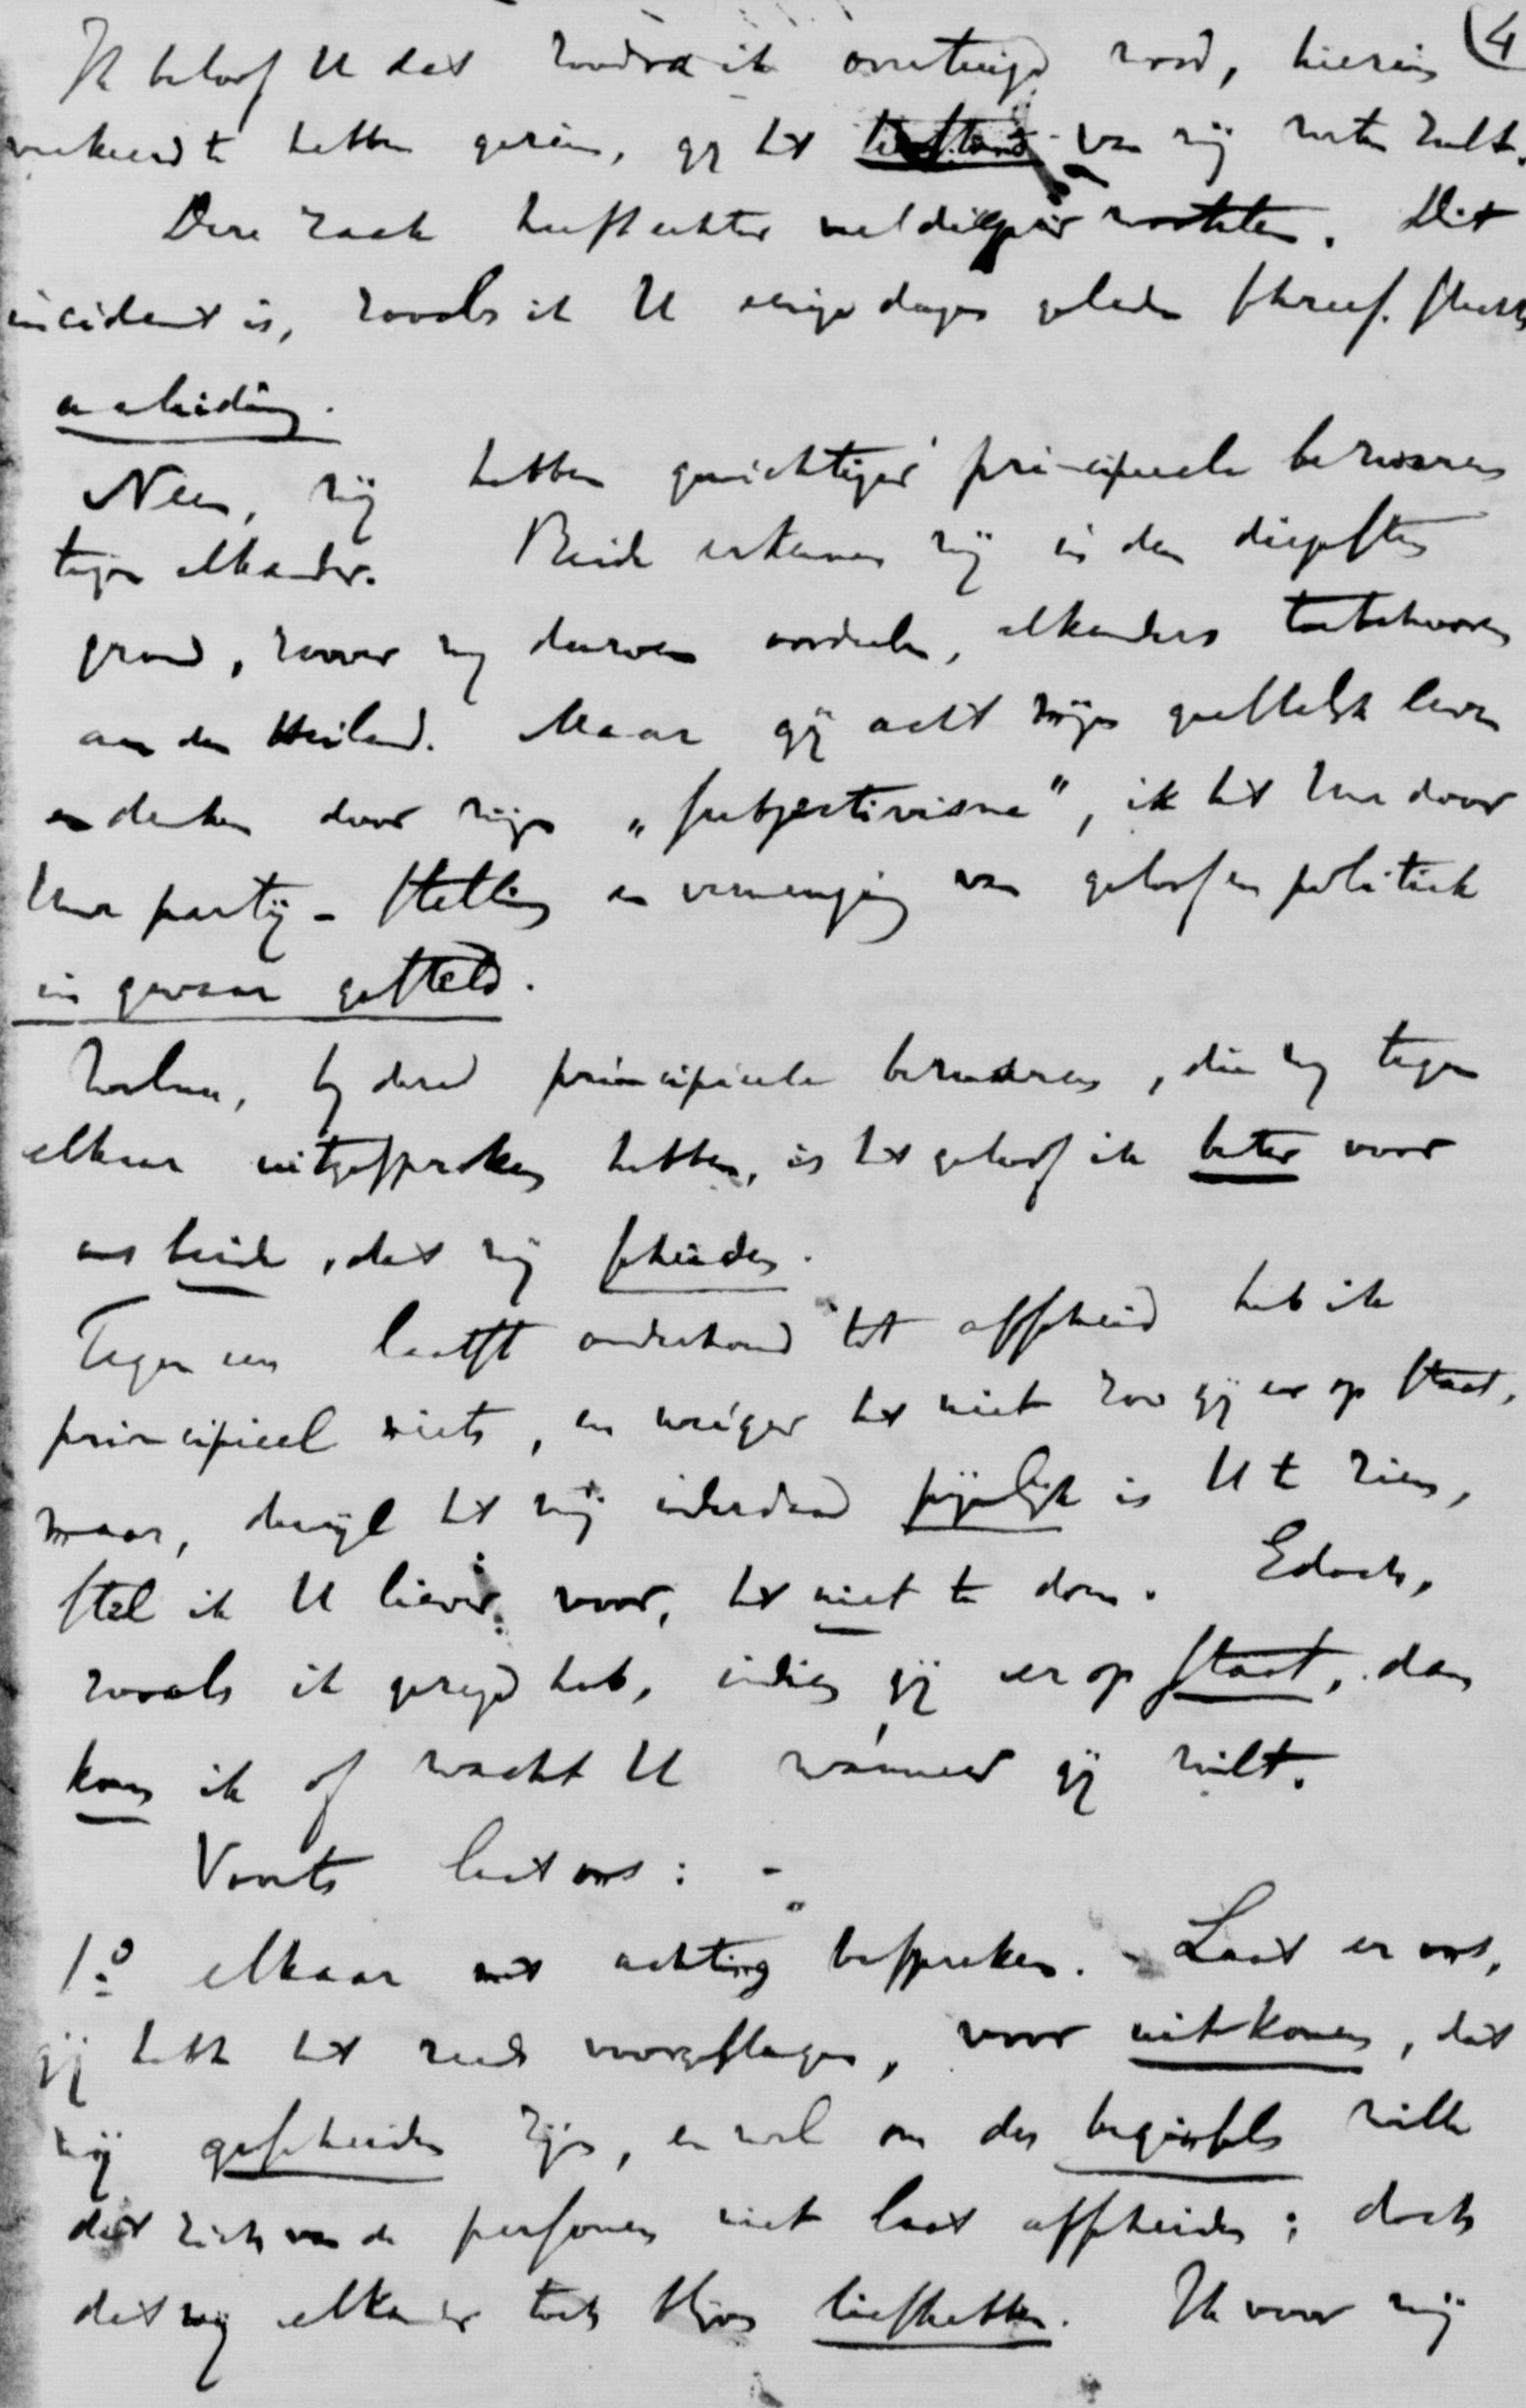 (4
Ik beloof U dat zoodra ik overtuigd word, hierin
verkeerd te hebben gezien, gij het van mij weten zult.
Deze zaak heeft echter veel dieper wortelen. Dit
incident is, zooals ik U eenige dagen geleden schreef. slechts
aanleiding.
Neen, wij hebben gewichtiger principieele bezwaren
tegen elkander. Beide erkennen wij in den diepsten
grond, zoover wij durven oordeelen, elkanders toebehooren
aan den Heiland. Maar gij acht mijn geestelijk leven
en denken door mijn „subjectivisme", ik het Uwe door
Uwe partij-stelling en vermenging van geloof en politiek
in gevaar gesteld.
Welnu, bij deze principieele bezwaren, die wij tegen
elkaar uitgesproken hebben, is het geloof ik beter voor
ons beide, dat wij scheiden.
Tegen een laatst onderhoud tot afscheid heb ik
principieel niets, en weiger het niet zoo gij er op staat,
maar, dewijl het mij inderdaad pijnlijk is U te zien,
stel ik U liever voor, het niet te doen. Edoch,
zooals ik gezegd heb, indien gij er op staat, dan
kom ik of wacht U wanneer gij wilt.
Voorts laat ons: -
1o elkaar met achting bespreken. - Laat er ons,
gij hebt het reeds voorgeslagen, voor uitkomen, dat
wij gescheiden zijn, en wel om des beginsels wille
dat zich van de personen niet laat afscheiden; doch
dat wij elkander toch blijven liefhebben. Ik voor mij